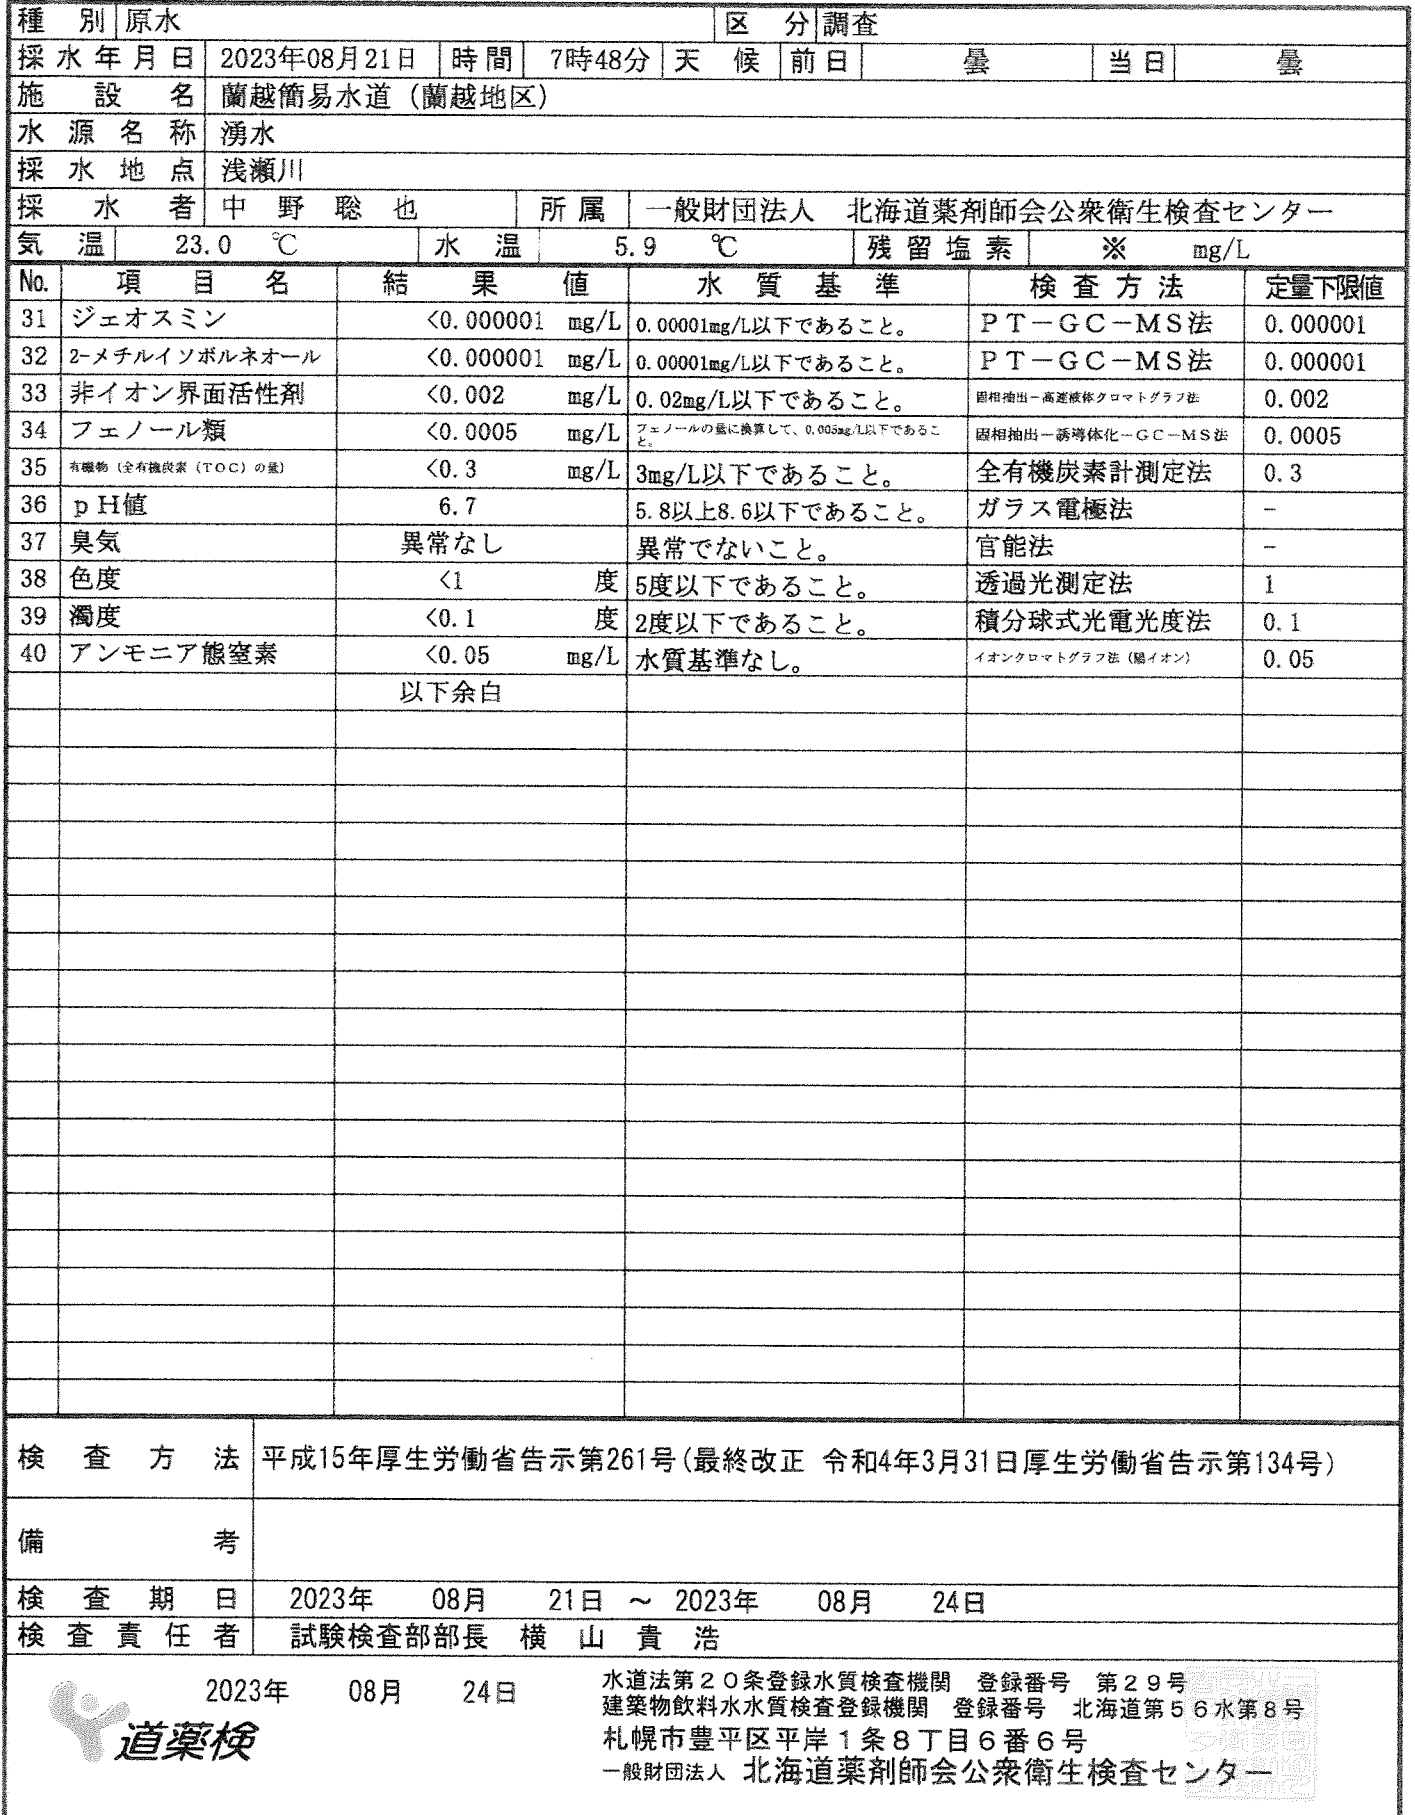 種別 原水 区分 調査
採水年月日 2023年08月21日 時間 7時48分 天候 前日 曇 当日 曇
施設名 蘭越簡易水道（蘭越地区）
水源名称 湧水
採水地点 浅瀬川
採水者 中野聡也 所属 一般財団法人 北海道薬剤師会公衆衛生検査センター
気温 23.0 ℃ 水温 5.9 ℃ 残留塩素 ※ mg/L
No. 項目名 結果値 水質基準 検査方法 定量下限値
31 ジェオスミン <0.000001 mg/L 0.00001mg/L以下であること。 PT－GC－MS法 0.000001
32 2-メチルイソボルネオール <0.000001 mg/L 0.00001mg/L以下であること。 PT－GC－MS法 0.000001
33 非イオン界面活性剤 <0.002 mg/L 0.02mg/L以下であること。 固相抽出－高速液体クロマトグラフ法 0.002
34 フェノール類 <0.0005 mg/L フェノールの量に換算して、0.005mg/L以下であること。 固相抽出－誘導体化－GC－MS法 0.0005
35 有機物（全有機炭素（TOC）の量） <0.3 mg/L 3mg/L以下であること。 全有機炭素計測定法 0.3
36 pH値 6.7 5.8以上8.6以下であること。 ガラス電極法 －
37 臭気 異常なし 異常でないこと。 官能法 －
38 色度 <1 度 5度以下であること。 透過光測定法 1
39 濁度 <0.1 度 2度以下であること。 積分球式光電光度法 0.1
40 アンモニア態窒素 <0.05 mg/L 水質基準なし。 イオンクロマトグラフ法（陽イオン） 0.05
以下余白
検査方法 平成15年厚生労働省告示第261号(最終改正 令和4年3月31日厚生労働省告示第134号)
備考
検査期日 2023年 08月 21日 ～ 2023年 08月 24日
検査責任者 試験検査部部長 横山貴浩
2023年 08月 24日
水道法第２０条登録水質検査機関 登録番号 第２９号
建築物飲料水水質検査登録機関 登録番号 北海道第５６水第８号
札幌市豊平区平岸１条８丁目６番６号
道薬検
一般財団法人 北海道薬剤師会公衆衛生検査センター